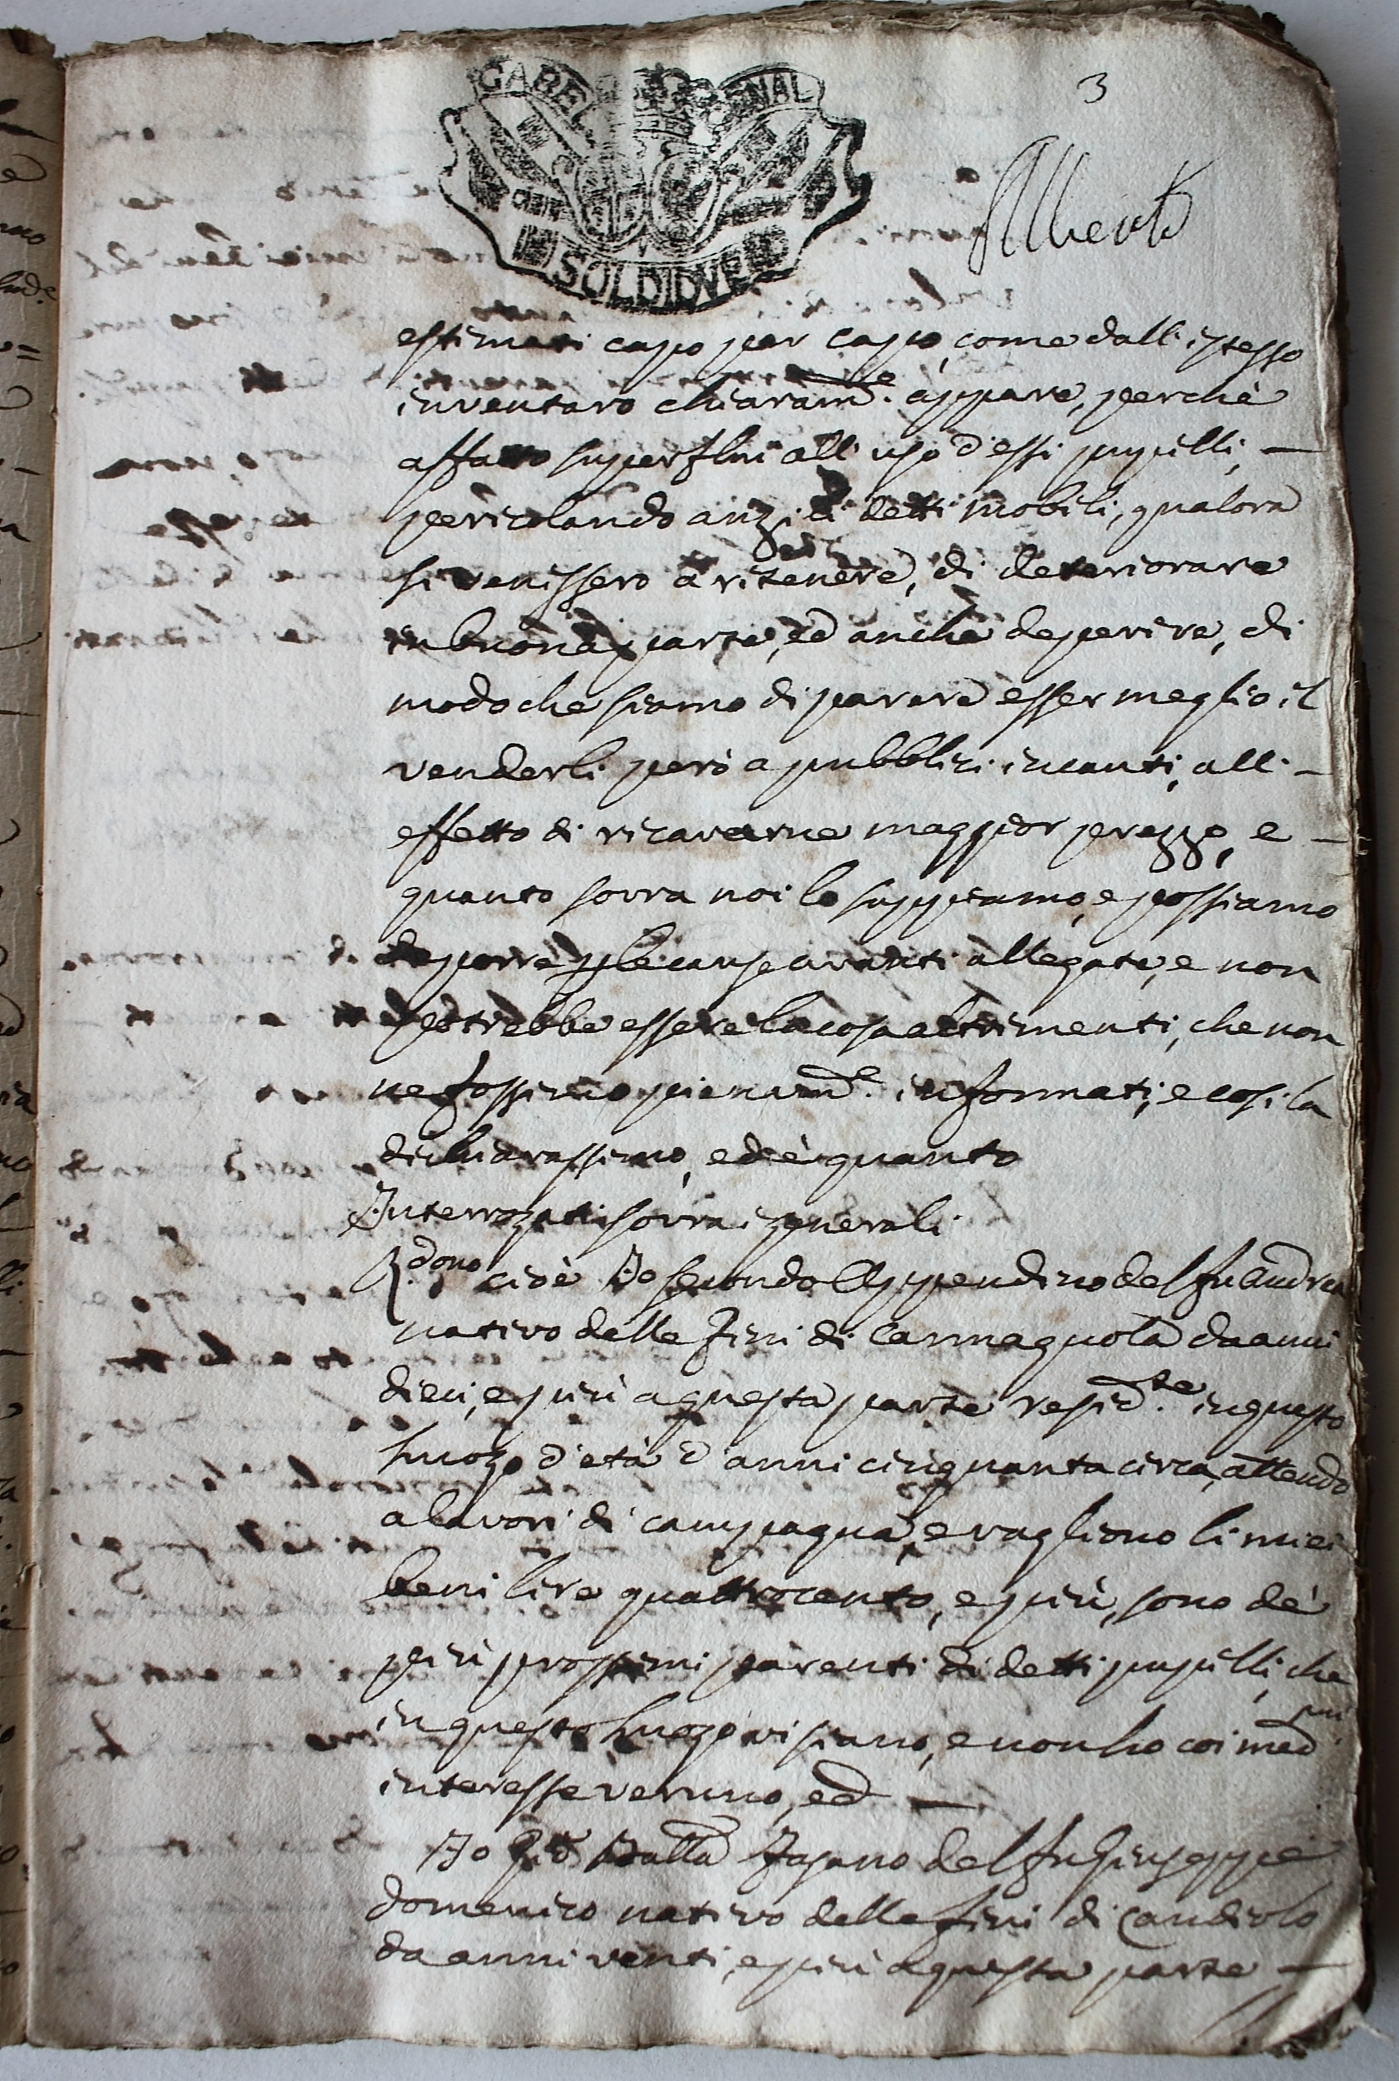 3
GABE ENAL
SOLDI DVE
Alberti
estimati capo per capo, come dall'istesso
inventaro chiaram.e appare, perchè
affatto superflui all'uso d'essi pupilli, —
pericolando anzi li detti mobili, qualora
si venissero a ritenere, di deteriorare
in buona parte, ed anche deperire, di
modo che siamo di parere esser meglio il
venderli però a pubblici incanti, all' —
effetto di ricavarne maggior prezzo, e —
quanto sovra noi lo sappiamo, e possiamo
deporre p le cause avanti allegate, e non
potrebbe essere la cosa altrimenti, che non
ne fossimo pienam.e informati, e così la
dichiarassimo, ed è quanto
Interrogati sovra i generali
R.dono cioè Io secondo Appendino del fu Andrea
nativo delle fini di Carmagnola da anni
dieci, e più a questa parte resid.te in questo
luogo d'età d'anni cinquanta circa, attendo
a lavori di campagna, e vagliono li miei
beni lire quattrocento, e più, sono de'
più prossimi parenti di detti pupilli, che
in questo luogo vi siano, e non ho coi med.mi
interesse veruno, ed —
Io Gio Batta Fasano del fu Giuseppe
domenico nativo delle fini di Candiolo
da anni venti, e più a questa parte —